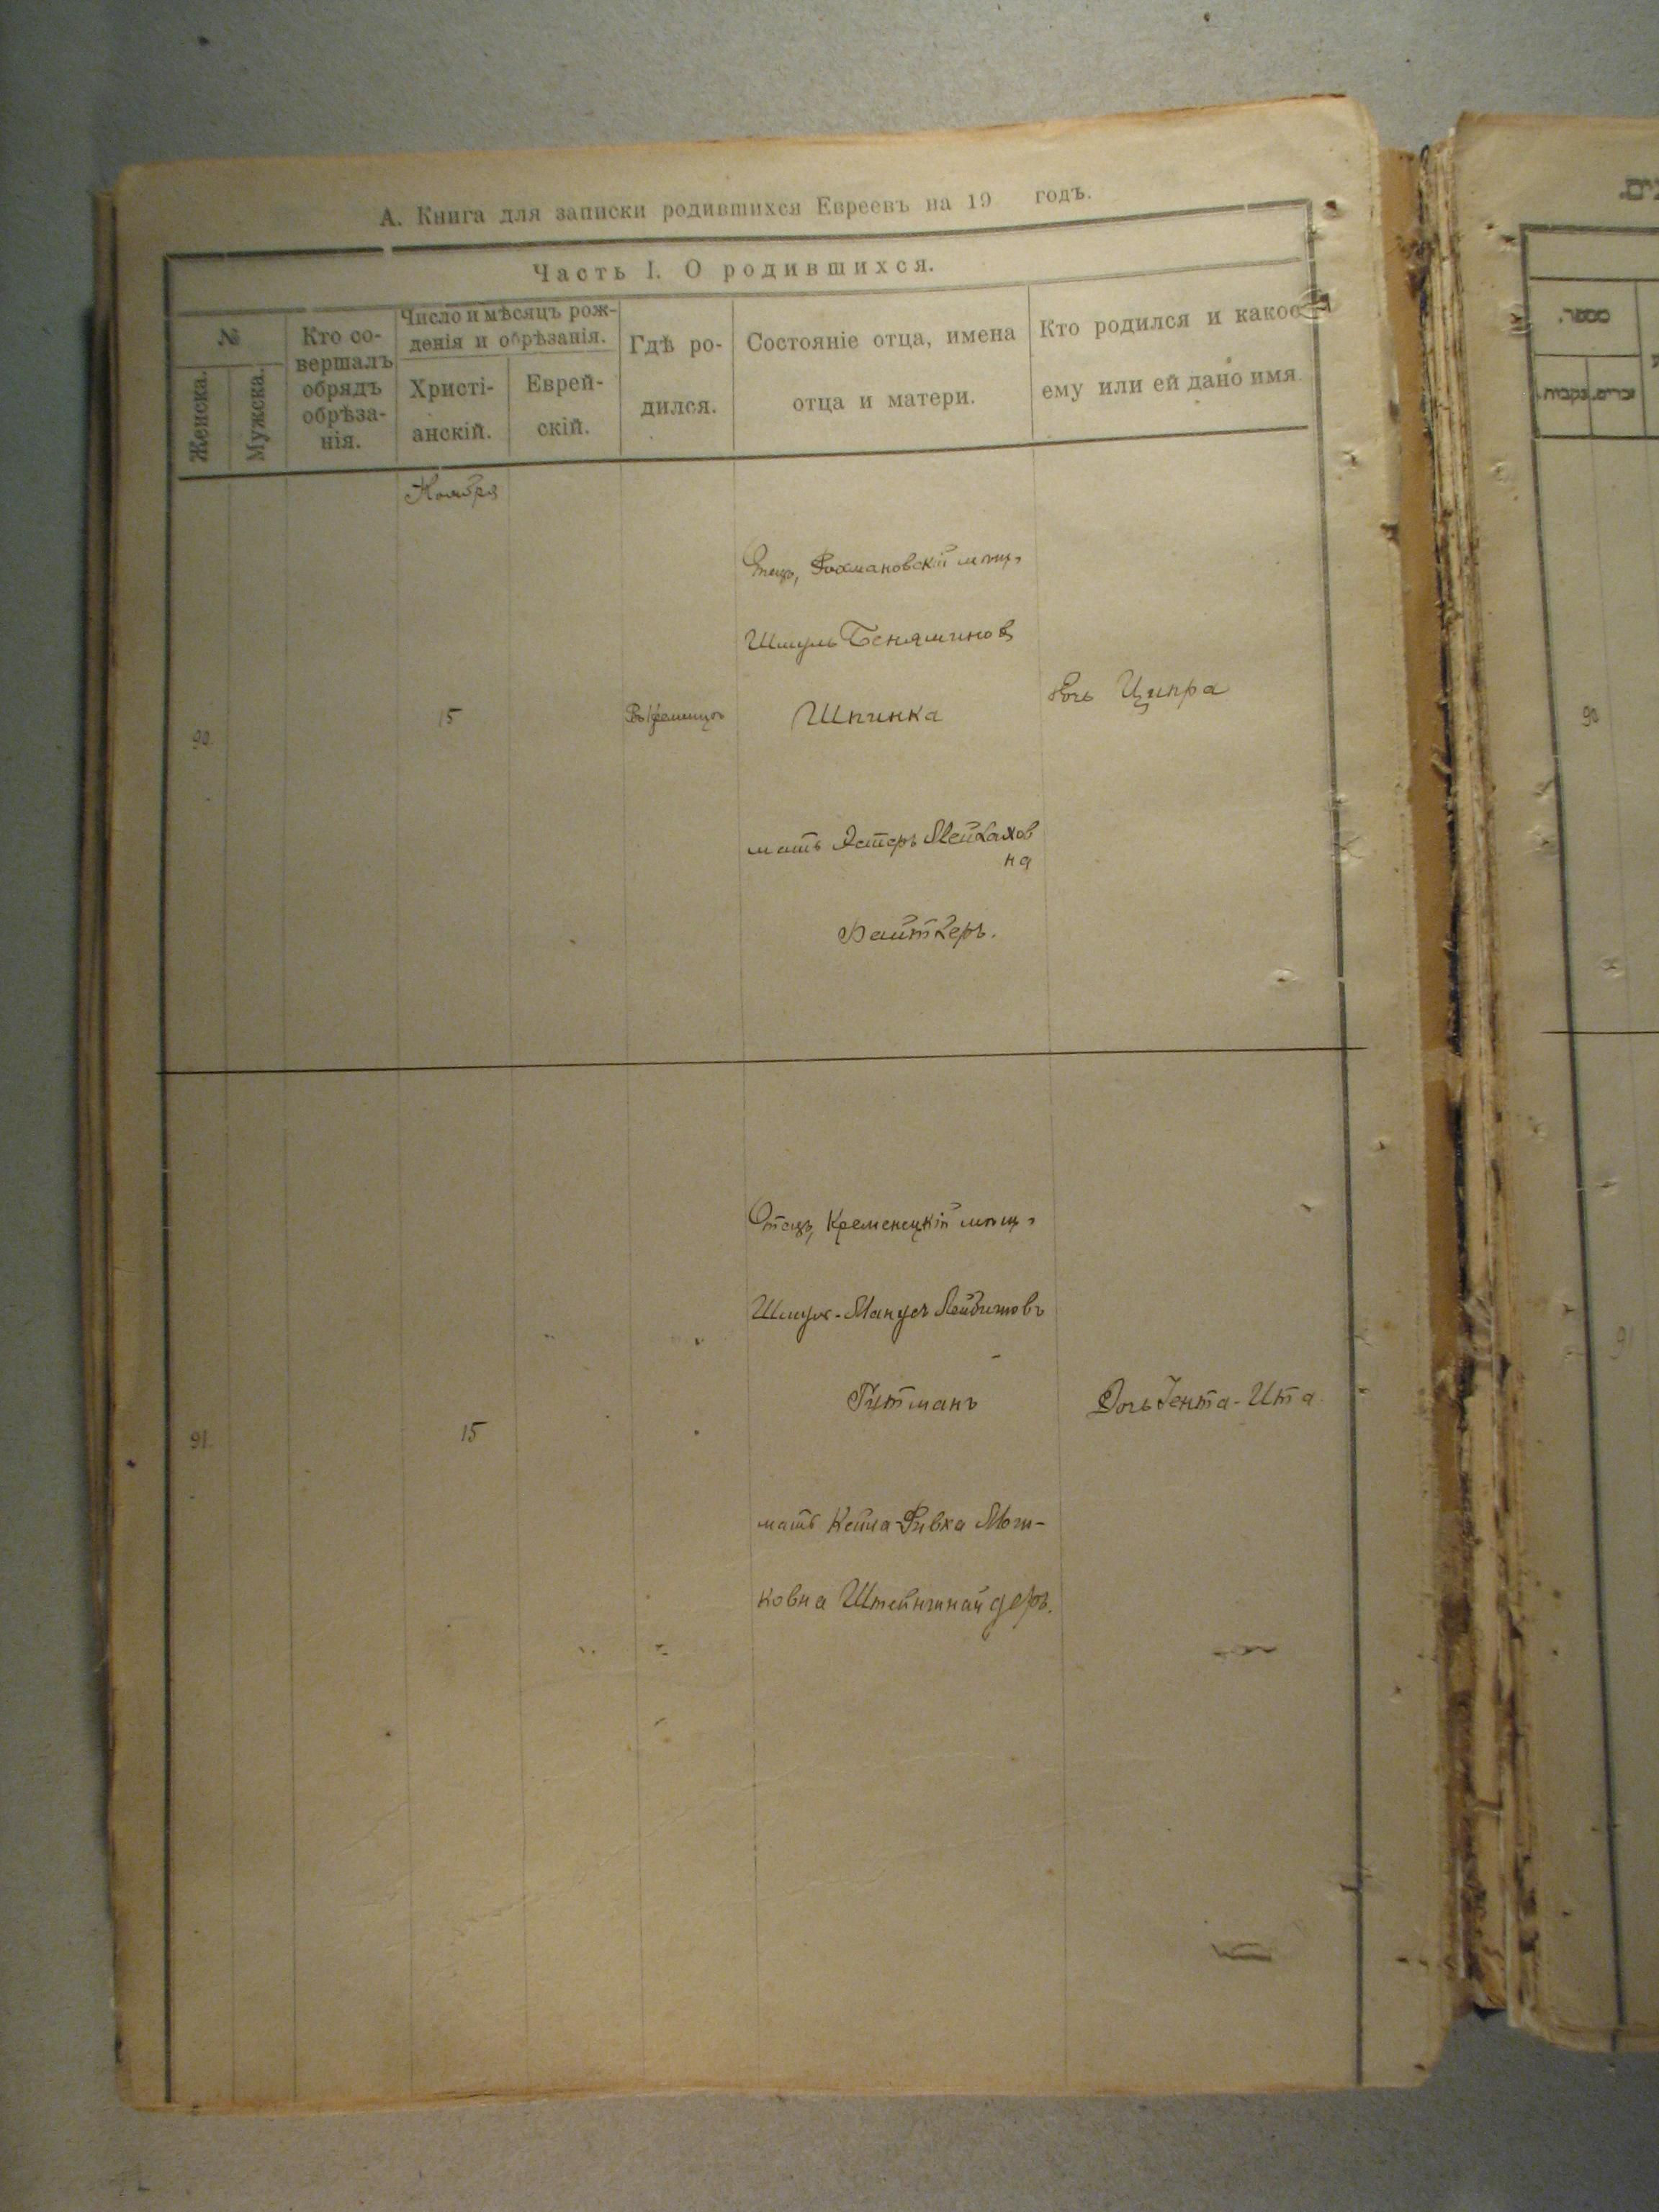 А. Книга для записки родившихся Евреевъ на 19 годъ.
Часть I. О родившихся.
№
Женска.
Мужска.
Кто со-
вершалъ
обрядъ
обрѣза-
нія.
Число и мѣсяцъ рож-
денія и обрѣзанія.
Христі-
анскій.
Еврей-
скій.
Гдѣ ро-
дился.
Состояніе отца, имена
отца и матери.
Кто родился и какое
ему или ей дано имя.
Ноября
90.
15
Въ Кременцѣ
Отецъ, Рохмановскій мѣщ.
Шмуль Беняминовъ
Шпинка
мать Эстеръ
на
Дочь Ципра
91.
15
Отецъ, Кременецкій мѣщ.
Шмуль-Манусъ Лейбишовъ
Гутманъ
мать Кейла-Ривка Мош-
ковна Штейншнайдеръ.
Дочь Гента-Ита
מספר.
נקבות.
זכרים.
90
91